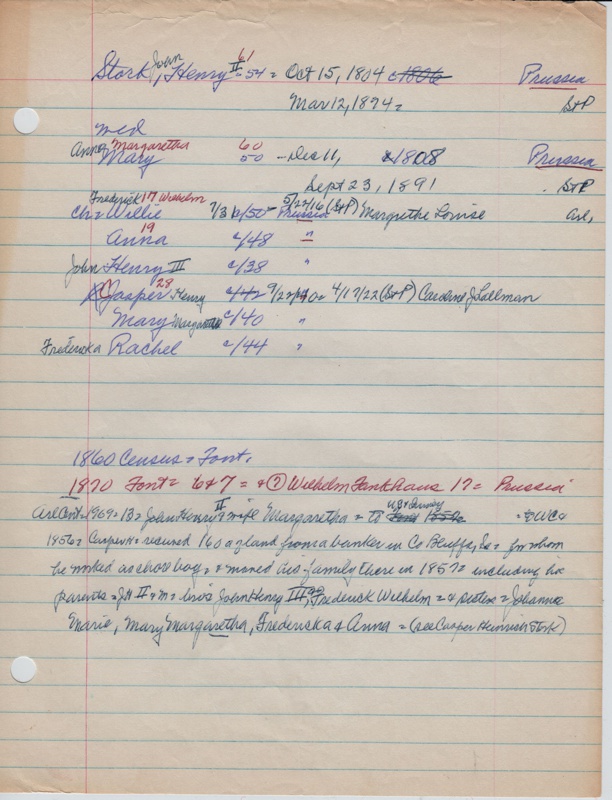 John 61
Stork, Henry II - 54 = Oct 15, 1804 c1806 Prussia
Mar 12, 1894 = S+P
med
Anna Margaretha 60
Mary 50 - Dec 11, 1808 Prussia
Sept 23, 1891 S+P
Frederick 17 Wilhelm 5/22/16 (S+P)
Ch = Willie 7/3 c/50 = Prussia Margrethe Louise Arl,
19
Anna c/48 "
John Henry III c/38 "
28
Casper Henry c/42 9/22/40 = 4/17/22 (S+P) Caroline J Lallman
Mary Margaretha c/40 "
Fredericka Rachel c/44 "
1860 Census = Font.
1870 Font = 6+7 = + (7) Wilhelm Fankhaus 17 = Prussia
Arl Cent = 1969 = 13 = John Henry II + wife Margaretha = To US = + WC =
1856 = Casper H = received 160 a land from a banker in Co Bluffs, Ia = for whom
he worked as chore boy = + moved his family there in 1857 = including his
parents = JH II + M = bros John Henry III +, Frederick Wilhelm = + sisters = Johanna
Marie, Mary Margaretha, Fredericka + Anna = (see Casper Heinrich Stork)